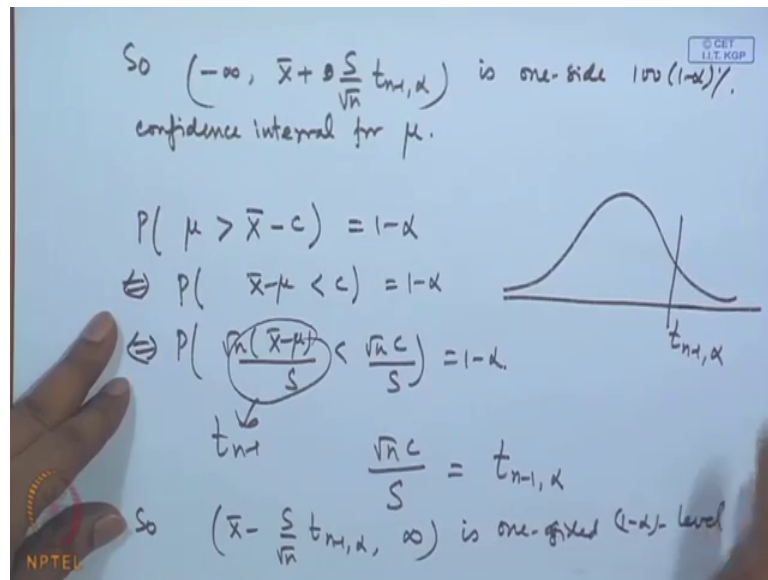 © CET
I.I.T. KGP
So (-∞, x̄ + S/√n t_{n-1, α}) is one-side 100(1-α)%.
confidence interval for μ.
P( μ > x̄ - c) = 1-α
⇔ P( x̄-μ < c) = 1-α
⇔ P( √n(x̄-μ)/S < √n c/S ) = 1-α.
t_{n-1, α}
t_{n-1}
√n c/S = t_{n-1, α}
So (x̄ - S/√n t_{n-1, α}, ∞) is one-sided (1-α)-level
NPTEL